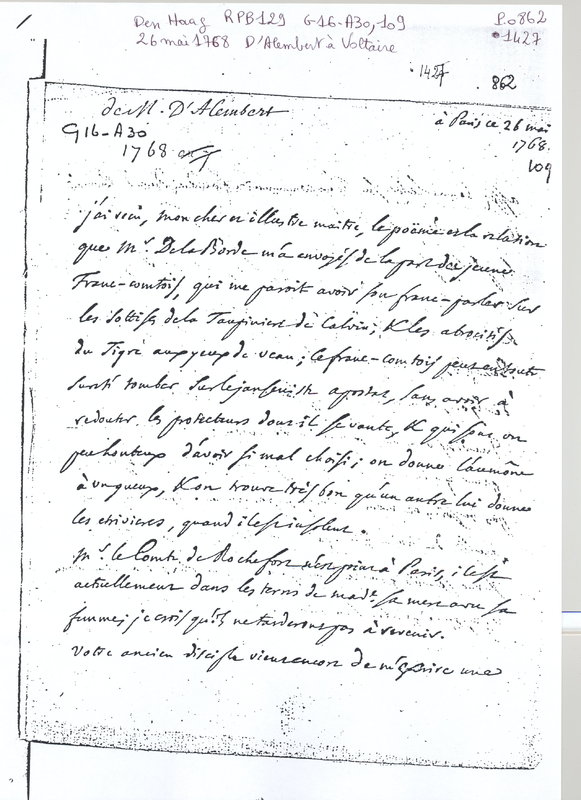 Den Haag RPB129 G16-A30,109 P.0862
26 mai 1768 D'Alembert à Voltaire •1427
•1427 .862
de M. D'Alembert
à Paris ce 26 mai
G16-A30
1768.
1768
109
j'ai reçu, mon cher et illustre maitre, le poëme et la relation
que Mr. De la Borde m'a envoyés de la part du jeune
Franc-comtois, qui me paroit avoir son franc-parler sur
les sottises de la Taupiniere de Calvin, & les atrocités
du Tigre aux yeux de veau; le franc-comtois peut en toute
sureté tomber sur le janseniste apostat, sans avoir à
redouter les protecteurs dont il se vante, & qui sont un
peu honteux d'avoir si mal choisi; on donne l'aumône
à un gueux, & on trouve très bon qu'un autre lui donne
les etrivieres, quand il est insolent.
Mr. le Comte de Rochefort n'est point à Paris, il est
actuellement dans les terres de made. sa mere avec sa
femme; je crois qu'ils ne tarderont pas à revenir.
Votre ancien disciple vient encore de m'ecrire une